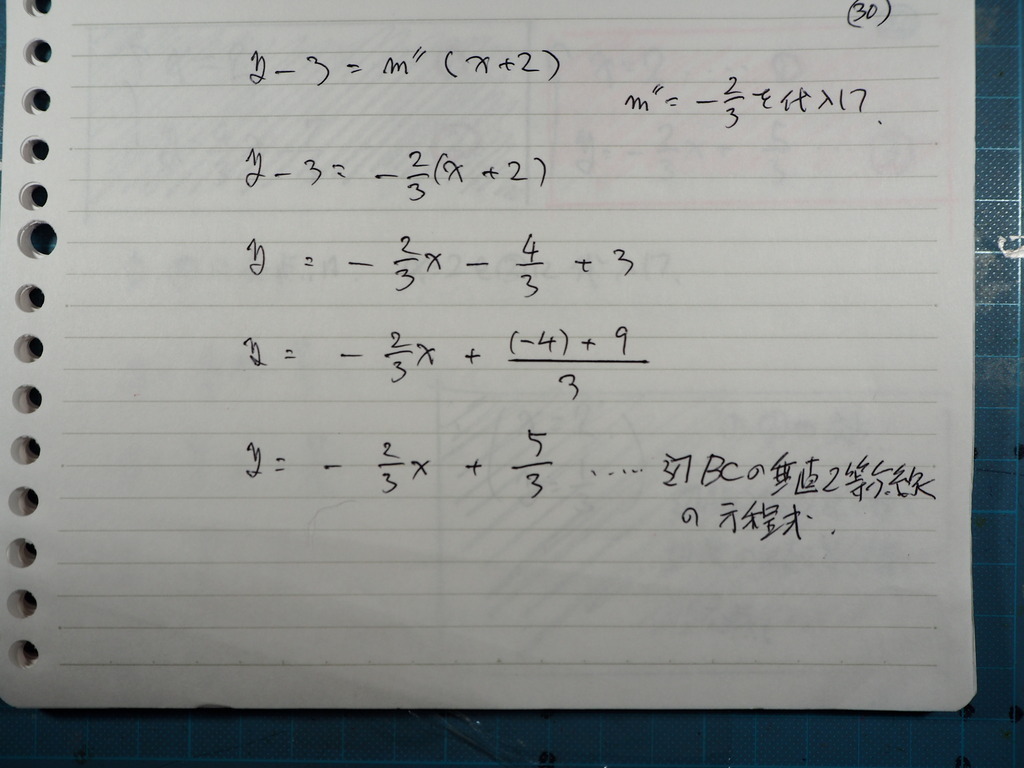 (30)
y - 3 = m″ (x+2)
m″ = -2/3 を代入して.
y - 3 = -2/3 (x + 2)
y = - 2/3 x - 4/3 + 3
y = - 2/3 x + (-4) + 9 / 3
y = - 2/3 x + 5/3 ..... 辺BCの垂直2等分線
の方程式.